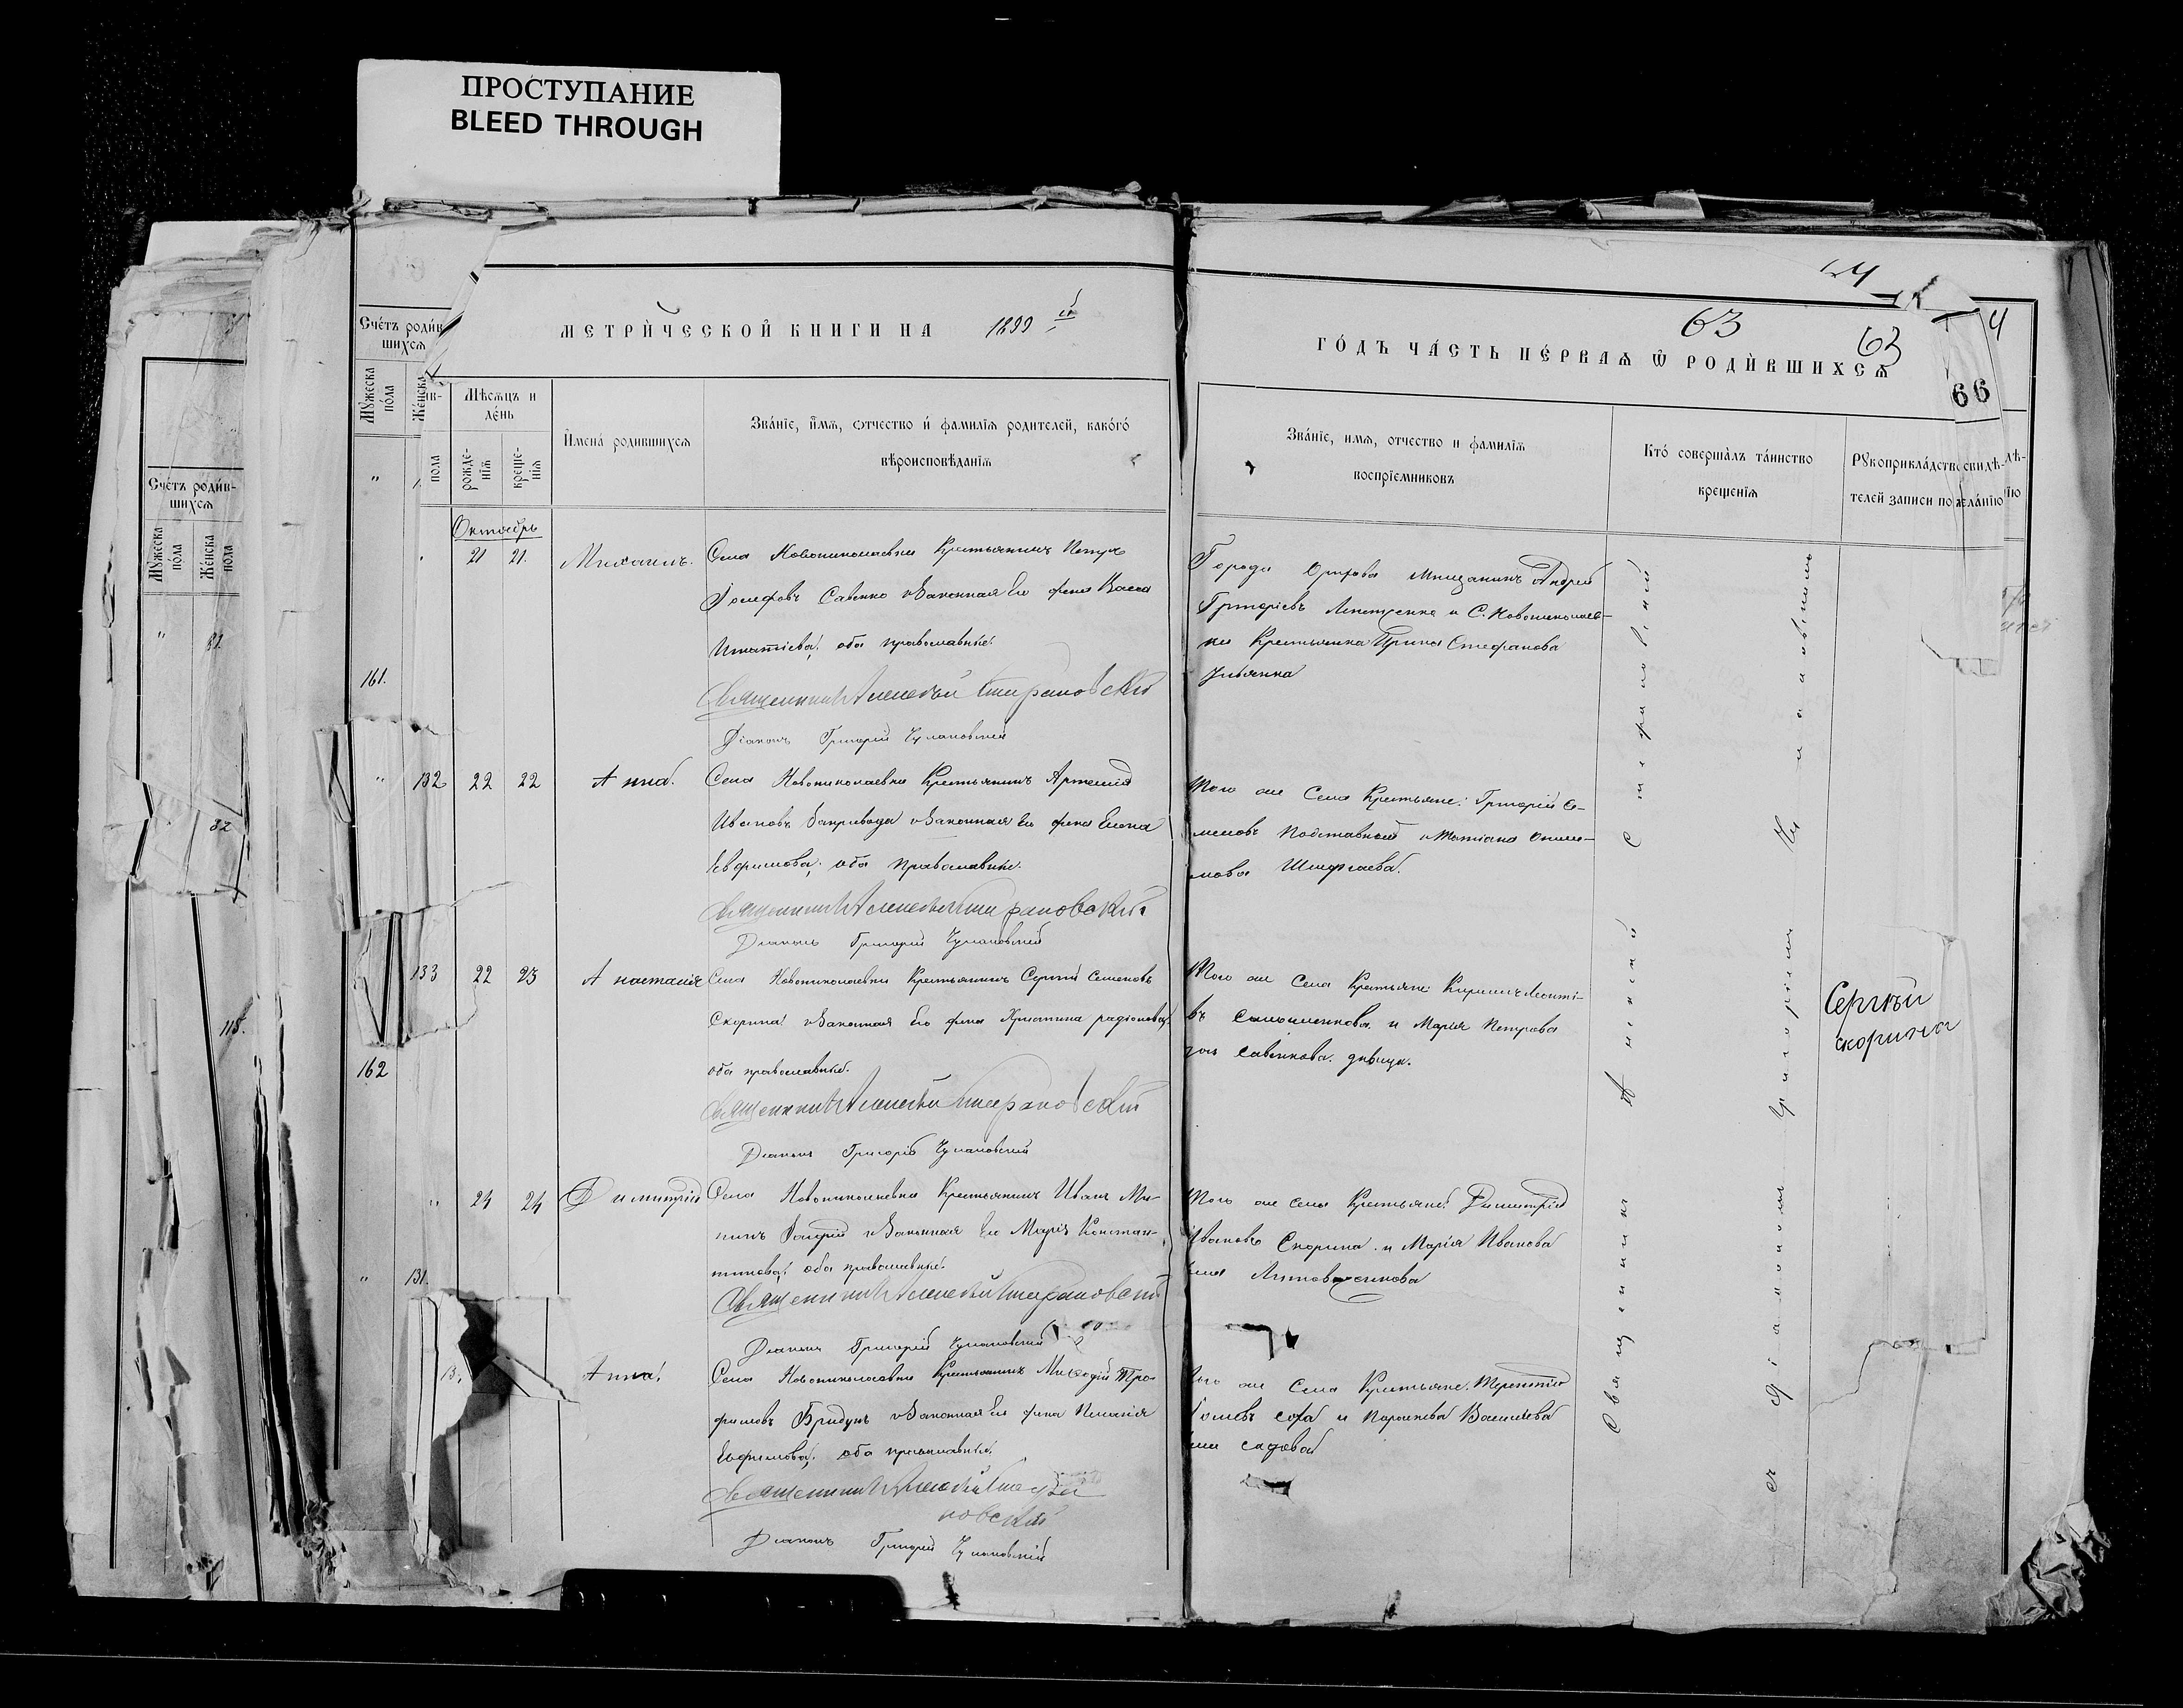 ПРОСТУПАНИЕ
BLEED THROUGH
МЕТРИЧЕСКОЙ КНИГИ НА 1899
ГОДЪ ЧАСТЬ ПЕРВАЯ Ѿ РОДИВШИХСЯ
63
63
4
66
Счетъ родив-
шихся
Мужеска пола
Женска
пола
Мѣсяцъ и
день
рожде-
нія
креще-
нія
Имена родившихся
Званіе, имя, отчество и фамилія родителей, какого
вѣроисповѣданія
Званіе, имя, отчество и фамилія
воспріемниковъ
Кто совершалъ таинство
крещенія
Рукоприкладство свидѣ-
телей записи по желанію
Счетъ родив-
шихся
Мужеска пола
Женска пола
81.
82
115.
161.
162
131.
Октябрь
21 21. Михаилъ.
Села Новониколаевки Крестьянинъ Петръ
Іосифовъ Савенко и Законная Его жена Васса
Игнатіева, оба православные.
Священникъ Алексѣй Стефановскій
Діаконъ Григорій Чулановскій
Города Орѣхова Мѣщанинъ Андрей
Григоріевъ и С. Новониколаев-
ки Крестьянка Ирина Стефанова
" 132 22 22 Анна.
Села Новониколаевки Крестьянинъ Артемій
Ивановъ Закривода и Законная Его жена Елена
Евфимова, оба Православные.
Священникъ Алексѣй Стефановскій
Діаконъ Григорій Чулановскій
Того же Села Крестьяне: Григорій Се-
меновъ Подставный и Татіана
133 22 23 Анастасія
Села Новониколаевки Крестьянинъ Сергій Семеновъ
Скорина и Законная Его жена Христина Радіонова,
оба православные.
Священникъ Алексѣй Стефановскій
Діаконъ Григорій Чулановскій
Того же Села Крестьяне: Кириллъ Леонті-
въ и Марія Петрова
Савенкова девица.
Сергѣй
скорина
" 24 24 Димитрій
Села Новониколаевки Крестьянинъ Иванъ Ми-
и Законная Его Марія Констан-
тинова, оба православные.
Священникъ Алексѣй Стефановскій
Діаконъ Григорій Чулановскій
Того же села Крестьяне: Димитрій
Ивановъ Скорина и Марія Иванова
Анна.
Села Новониколаевки Крестьянинъ Меѳодій Тро-
фимовъ Бридунъ и Законная Его жена Пелагія
Евфимова, оба православные.
Священникъ Алексѣй Стефа
новскій
Діаконъ Григорій Чулановскій
Того же Села Крестьяне: Терентій
и Параскева Василіева
Священникъ Алексѣй Стефановскій
съ Діакономъ Григоріемъ Чулановскимъ